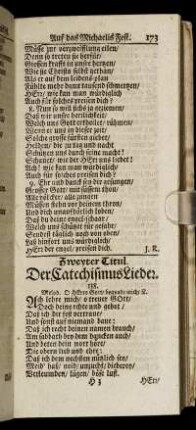 Auf das Michaelis Fest. 173
Müsse zur verzweiflung eilen/
Denn so treten sie herfür/
Giessen krafft in unsre hertzen/
Wie sie Christo selbst gethan/
Als er auf dem leidens-plan
Fühlte mehr denn tausend schmertzen/
HErr/ wie kan man würdiglich
Auch für solches preisen dich?
8. Nun sie will sichs ja geziemen/
Daß wir unsre herrlichkeit/
Welch uns Gott erhöhet/ rühmen/
Wenn er uns zu dieser zeit/
Solche grosse fürsten giebet/
Helden/ die zu tag und nacht
Schützen uns durch seine macht!
Schauet/ wie der HErr uns liebet!
Ach! wie kan man würdiglich
Auch für solches preisen dich?
9. Ehr und danck sey dir gesungen/
Grosser Gott/ mit süssem thon/
Alle völcker/ alle zungen
Müssen stehn vor deinem thron/
Und dich unaufhörlich loben/
Daß du deine engel-schaar/
Welch uns schützet für gefahr/
Sendest täglich noch von oben/
Laß hinfort uns würdiglich/
HErr der engel/ preisen dich. J. R.
Zweyter Titul
Der Catechismus Lieder.
198.
Meloch. O HErre Gott/ begnade mich/ N.
ACh lehre mich/ o treuer GOtt/
Doch deine rechte und gebot/
Daß ich dir fest vertraue/
Und sonst auf niemand baue:
Daß ich recht deinen namen brauch/
Am sabbath des dem dencken auch/
und beten dein wort hört/
Die obern lieb und ehre;
Daß ich dem nechsten nützlich sey/
Meid/ haß/ neid/ unzucht/ dieberey/
Verleumden/ lügen/ böse lust.
H 3 HErr/